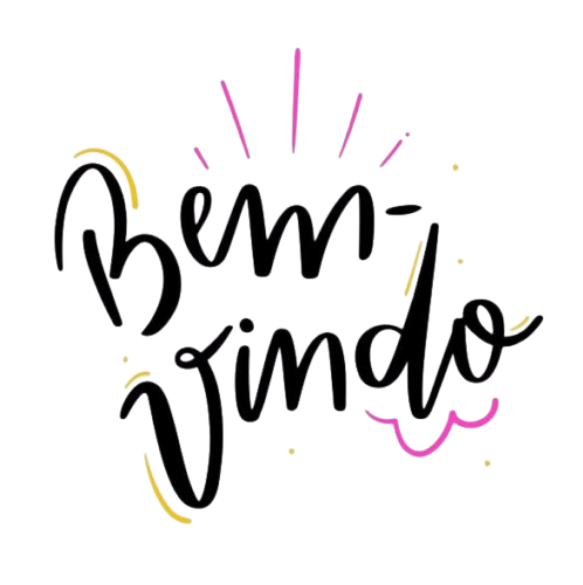 Bem-
Vindo